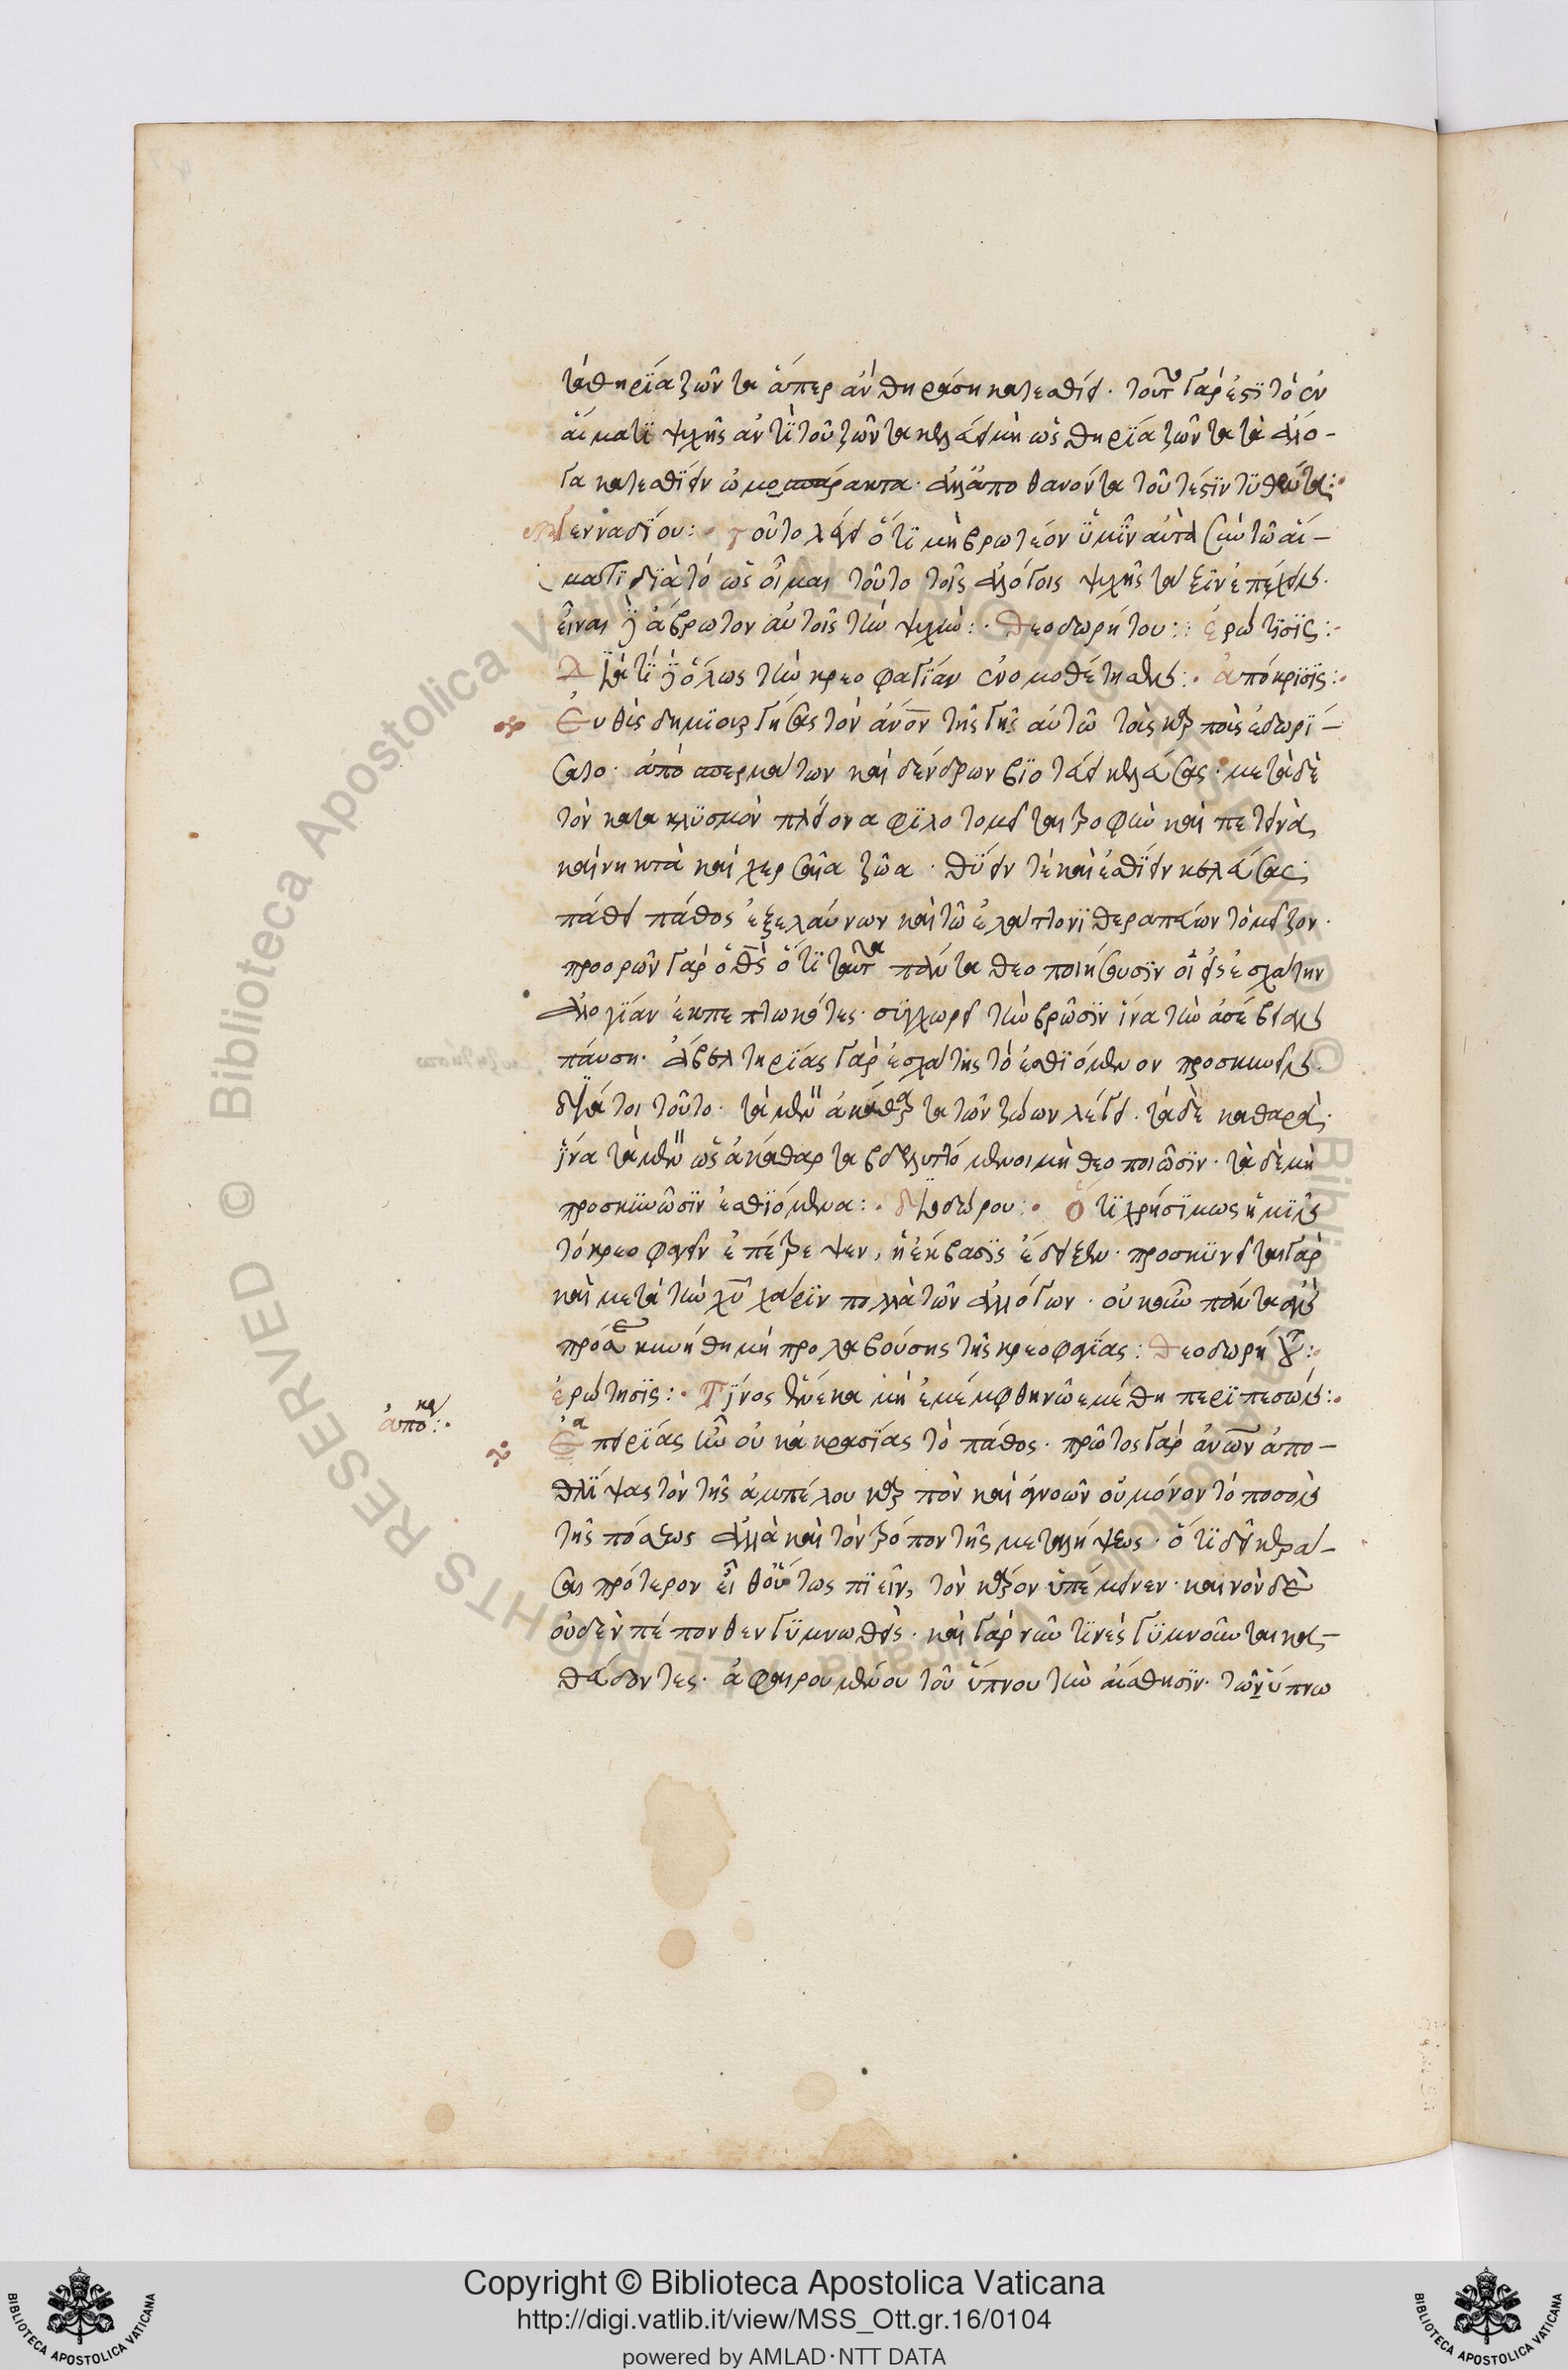 τὰ θηρία ζῶντα ἅπερ ἂν θηράση κατεσθίει. τοῦτο γάρ ἐστι τὸ ἐν
αἵματι ψυχῆς ἀντὶ τοῦ ζῶντα κελεύει μὴ ὡς θηρία ζῶντα τὰ ἄλο-
γα κατεσθίειν ὠμοσπάρακτα. ἀλλ' ἀποθανόντα τουτέστιν τυθέντα:
Γενναδίου: τοῦτο λέγει ὅτι μὴ βρωτέον ὑμῖν αὐτὰ σὺν τῶ αἵ-
ματι διὰ τό ὡς οἶμαι τοῦτο τοῖς ἀλόγοις ψυχῆς τάξιν ἐπέχειν.
εἶναι καὶ ἄβρωτον αὐτοῖς τὴν ψυχήν: Θεοδωρήτου: ἐρώτησις:
Διὰ τί καὶ ὅλως τὴν κρεοφαγίαν ἐνομοθέτησεν: ἀπόκρισις:
Εὐθὺς δημιουργήσας τὸν ἄνον τῆς γῆς αὐτῶ τοὺς καρποὺς ἐδωρή-
σατο. ἀπὸ σπερμάτων καὶ δένδρων βιοτεύει κελεύσας. μετὰ δὲ
τὸν κατακλυσμὸν πλείονα φιλοτομεῖται τροφὴν καὶ πετεινὰ,
καὶ νηκτὰ καὶ χερσαῖα ζῶα. θύειν τὲ καὶ ἐσθίειν κελεύσας,
πάθει πάθος ἐξελαύνων καὶ τῶ ἐλάττονι θεραπεύων τὸ μεῖζον.
προορῶν γὰρ ὁ θς ὅτι ταῦτα πάντα θεοποιήσουσιν οἱ εἰς ἐσχάτην
ἀλογίαν ἐκπεπτωκότες. συγχωρεῖ τὴν βρῶσιν ἵνα τὴν ἀσέβειαν
παύση. ἀβελτηρίας γὰρ ἐσχάτης τὸ ἐσθιόμενον προσκυνεῖν.
διά τοι τοῦτο. τὰ μὲν ἀκάθαρτα τῶν ζώων λέγει. τὰ δὲ καθαρὰ.
ἵνα τὰ μὲν ὡς ἀκάθαρτα βδελυττόμενοι μὴ θεοποιῶσιν. τὰ δὲ μὴ
προσκυνῶσιν ἐσθιόμενα: διοδώρου: Ὅτι χρησίμως ἡμῖν
τὸ κρεοφαγεῖν ἐπέτρεψεν, ἡ ἔκβασις ἔδειξεν. προσκυνεῖται γὰρ
καὶ μετὰ τὴν χυ χάριν πολλὰ τῶν ἀλόγων. οὐκοῦν πάντα ἂν
προσεκυνήθη μὴ προλαβούσης τῆς κρεοφαγίας: Θεοδωρήτου:
ἐρώτησις: Τίνος ἕνεκα μὴ ἐμέμφθη νῶε μέθη περιπεσών:
ἀπόκρ:
Ἀπειρίας ἦν οὐκ ἀκρασίας τὸ πάθος. πρῶτος γὰρ ἀνων ἀπο-
θλίψας τὸν τῆς ἀμπέλου καρπὸν καὶ ἀγνοῶν οὐ μόνον τὸ ποσὸν
τῆς πόσεως ἀλλὰ καὶ τὸν τρόπον τῆς μεταλήψεως. ὅτι δεῖ κερά-
σαι πρότερον εἶθ' οὕτως πιεῖν, τὸν κάρον ὑπέμεινεν. καινὸν δὲ
οὐδὲν πέπονθεν γυμνωθεὶς. καὶ γὰρ νῦν τινὲς γυμνοῦνται κα-
θεύδοντες. ἀφαιρουμένου τοῦ ὕπνου τὴν αἴσθησιν. τῶ ὕπνω
Copyright © Biblioteca Apostolica Vaticana
http://digi.vatlib.it/view/MSS_Ott.gr.16/0104
powered by AMLAD·NTT DATA